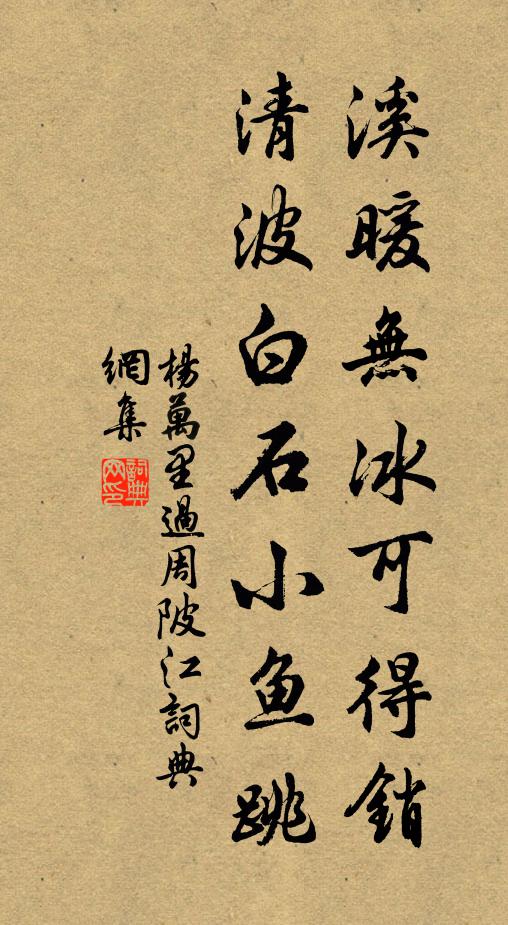 溪暖無冰可得銷
清波白石小魚跳
楊萬里過周陂江詞典
網集
詞典
网印